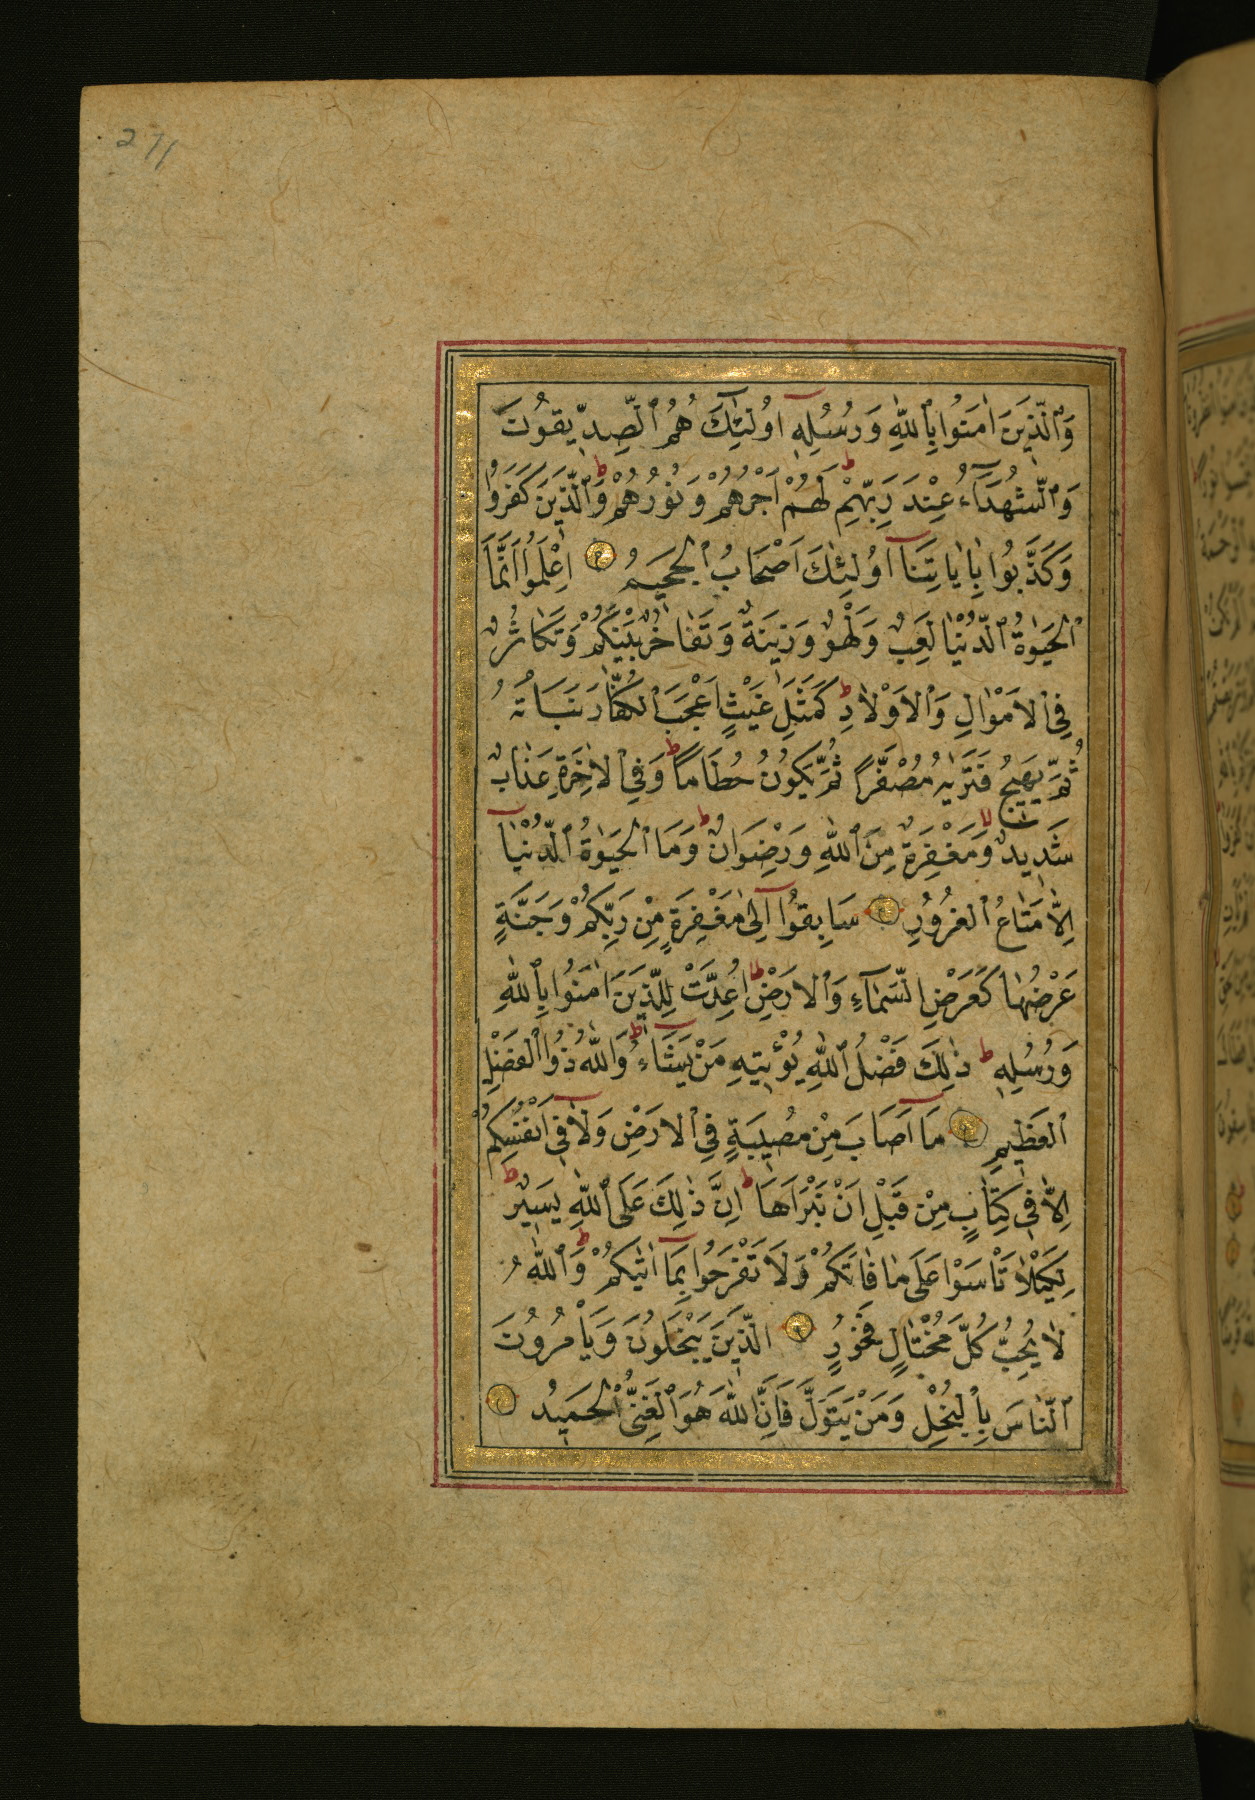 271
وَٱلَّذِينَ اٰمَنُوا بِٱللّٰهِ وَرُسُلِهٖٓ اُولٰٓئِكَ هُمُ ٱلصِّدّ۪يقُونَ
وَٱلشُّهَدَٓاءُ عِنْدَ رَبِّهِمْ ط لَهُمْ اَجْرُهُمْ وَنُورُهُمْ ط وَٱلَّذِينَ كَفَرُوا
وَكَذَّبُوا بِاٰيَاتِنَٓا اُولٰٓئِكَ اَصْحَابُ ٱلْجَحِيمِ اِعْلَمُٓوا اَنَّمَا
ٱلْحَيٰوةُ ٱلدُّنْيَا لَعِبٌ وَلَهْوٌ وَزِينَةٌ وَتَفَاخُرٌ بَيْنَكُمْ وَتَكَاثُرٌ
فِي ٱلْاَمْوَالِ وَٱلْاَوْلَادِ ط كَمَثَلِ غَيْثٍ اَعْجَبَ ٱلْكُفَّارَ نَبَاتُهُ
ثُمَّ يَهِيجُ فَتَرٰيهُ مُصْفَرًّا ثُمَّ يَكُونُ حُطَامًا ط وَفِي ٱلْاٰخِرَةِ عَذَابٌ
شَدِيدٌ لا وَمَغْفِرَةٌ مِنَ ٱللّٰهِ وَرِضْوَانٌ ط وَمَا ٱلْحَيٰوةُ ٱلدُّنْيَٓا
اِلَّا مَتَاعُ ٱلْغُرُورِ سَابِقُٓوا اِلٰى مَغْفِرَةٍ مِنْ رَبِّكُمْ وَجَنَّةٍ
عَرْضُهَا كَعَرْضِ ٱلسَّمَٓاءِ وَٱلْاَرْضِ ط اُعِدَّتْ لِلَّذِينَ اٰمَنُوا بِٱللّٰهِ
وَرُسُلِهٖ ط ذٰلِكَ فَضْلُ ٱللّٰهِ يُؤْتِيهِ مَنْ يَشَٓاءُ ط وَٱللّٰهُ ذُوا ٱلْفَضْلِ
ٱلْعَظِيمِ مَٓا اَصَابَ مِنْ مُصِيبَةٍ فِي ٱلْاَرْضِ وَلَا فِٓي اَنْفُسِكُمْ
اِلَّا فِي كِتَابٍ مِنْ قَبْلِ اَنْ نَبْرَاَهَا ط اِنَّ ذٰلِكَ عَلَى ٱللّٰهِ يَسِيرٌ ط
لِكَيْلَا تَأْسَوْا عَلٰى مَا فَاتَكُمْ وَلَا تَفْرَحُوا بِمَٓا اٰتٰيكُمْ ط وَٱللّٰهُ
لَا يُحِبُّ كُلَّ مُخْتَالٍ فَخُورٍ اَلَّذِينَ يَبْخَلُونَ وَيَأْمُرُونَ
ٱلنَّاسَ بِٱلْبُخْلِ وَمَنْ يَتَوَلَّ فَاِنَّ ٱللّٰهَ هُوَ ٱلْغَنِيُّ ٱلْحَمِيدُ